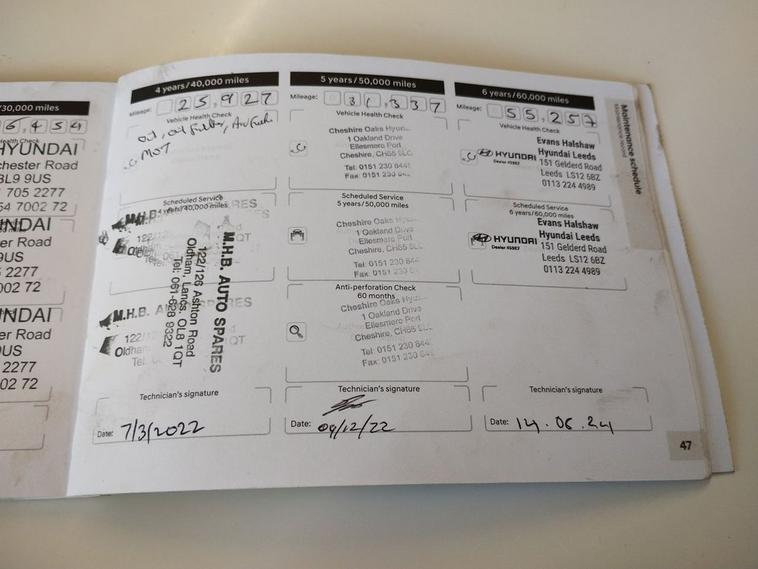 /30,000 miles
6,454
HYUNDAI
chester Road
BL9 9US
705 2277
54 7002 72
NDAI
er Road
9US
2277
02 72
NDAI
er Road
9US
2277
002 72
4 years/40,000 miles
Mileage: 25,927
Vehicle Health Check
Oil, Oil filter,
MOT
Scheduled Service
4 years/40,000 miles
M.H.B. AUTO SPARES
122/126 Ashton Road
Oldham, Lancs OL8 1QT
Tel: 061-628 9322
M.H.B.
Oldham
Technician's signature
Date: 7/3/2022
5 years/50,000 miles
Mileage: 31,337
Vehicle Health Check
Cheshire Oaks
1 Oakland Drive
Ellesmere Port
Cheshire, CH65
Tel: 0151 230
Fax: 0151 230
Scheduled Service
5 years/50,000 miles
Cheshire Oaks
1 Oakland Drive
Ellesmere Port
Cheshire, CH65
Tel: 0151 230
Fax: 0151 230
Anti-perforation Check
60 months
Cheshire Oaks
1 Oakland Drive
Ellesmere Port
Cheshire, CH65
Tel: 0151 230
Fax: 0151 230
Technician's signature
Date: 09/12/22
6 years/60,000 miles
Mileage: 55,257
Vehicle Health Check
Evans Halshaw
HYUNDAI Hyundai Leeds
151 Gelderd Road
Leeds LS12 6BZ
0113 224 4989
Scheduled Service
6 years/60,000 miles
Evans Halshaw
HYUNDAI Hyundai Leeds
151 Gelderd Road
Leeds LS12 6BZ
0113 224 4989
Technician's signature
Date: 14.06.24
Maintenance schedule
47